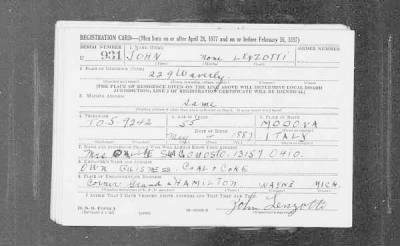 REGISTRATION CARD—(Men born on or after April 28, 1877 and on or before February 16, 1897)
SERIAL NUMBER 1. NAME (Print) ORDER NUMBER
U 931 JOHN none LENZOTTI
2. PLACE OF RESIDENCE (Print)
229 Waverly
[THE PLACE OF RESIDENCE GIVEN ON THE LINE ABOVE WILL DETERMINE LOCAL BOARD
JURISDICTION; LINE 2 OF REGISTRATION CERTIFICATE WILL BE IDENTICAL]
3. MAILING ADDRESS
Same
4. TELEPHONE 5. AGE IN YEARS 6. PLACE OF BIRTH
TO.5-9242 55 MODONA
DATE OF BIRTH
May 1887 ITALY
7. NAME AND ADDRESS OF PERSON WHO WILL ALWAYS KNOW YOUR ADDRESS
Mrs 13157 OHIO.
8. EMPLOYER'S NAME AND ADDRESS
OWN BUISNESS COAL & COKE
9. PLACE OF EMPLOYMENT OR BUSINESS
Corner Grand & HAMILTON WAYNE MICH.
I AFFIRM THAT I HAVE VERIFIED ABOVE ANSWERS AND THAT THEY ARE TRUE.
John Lenzotti